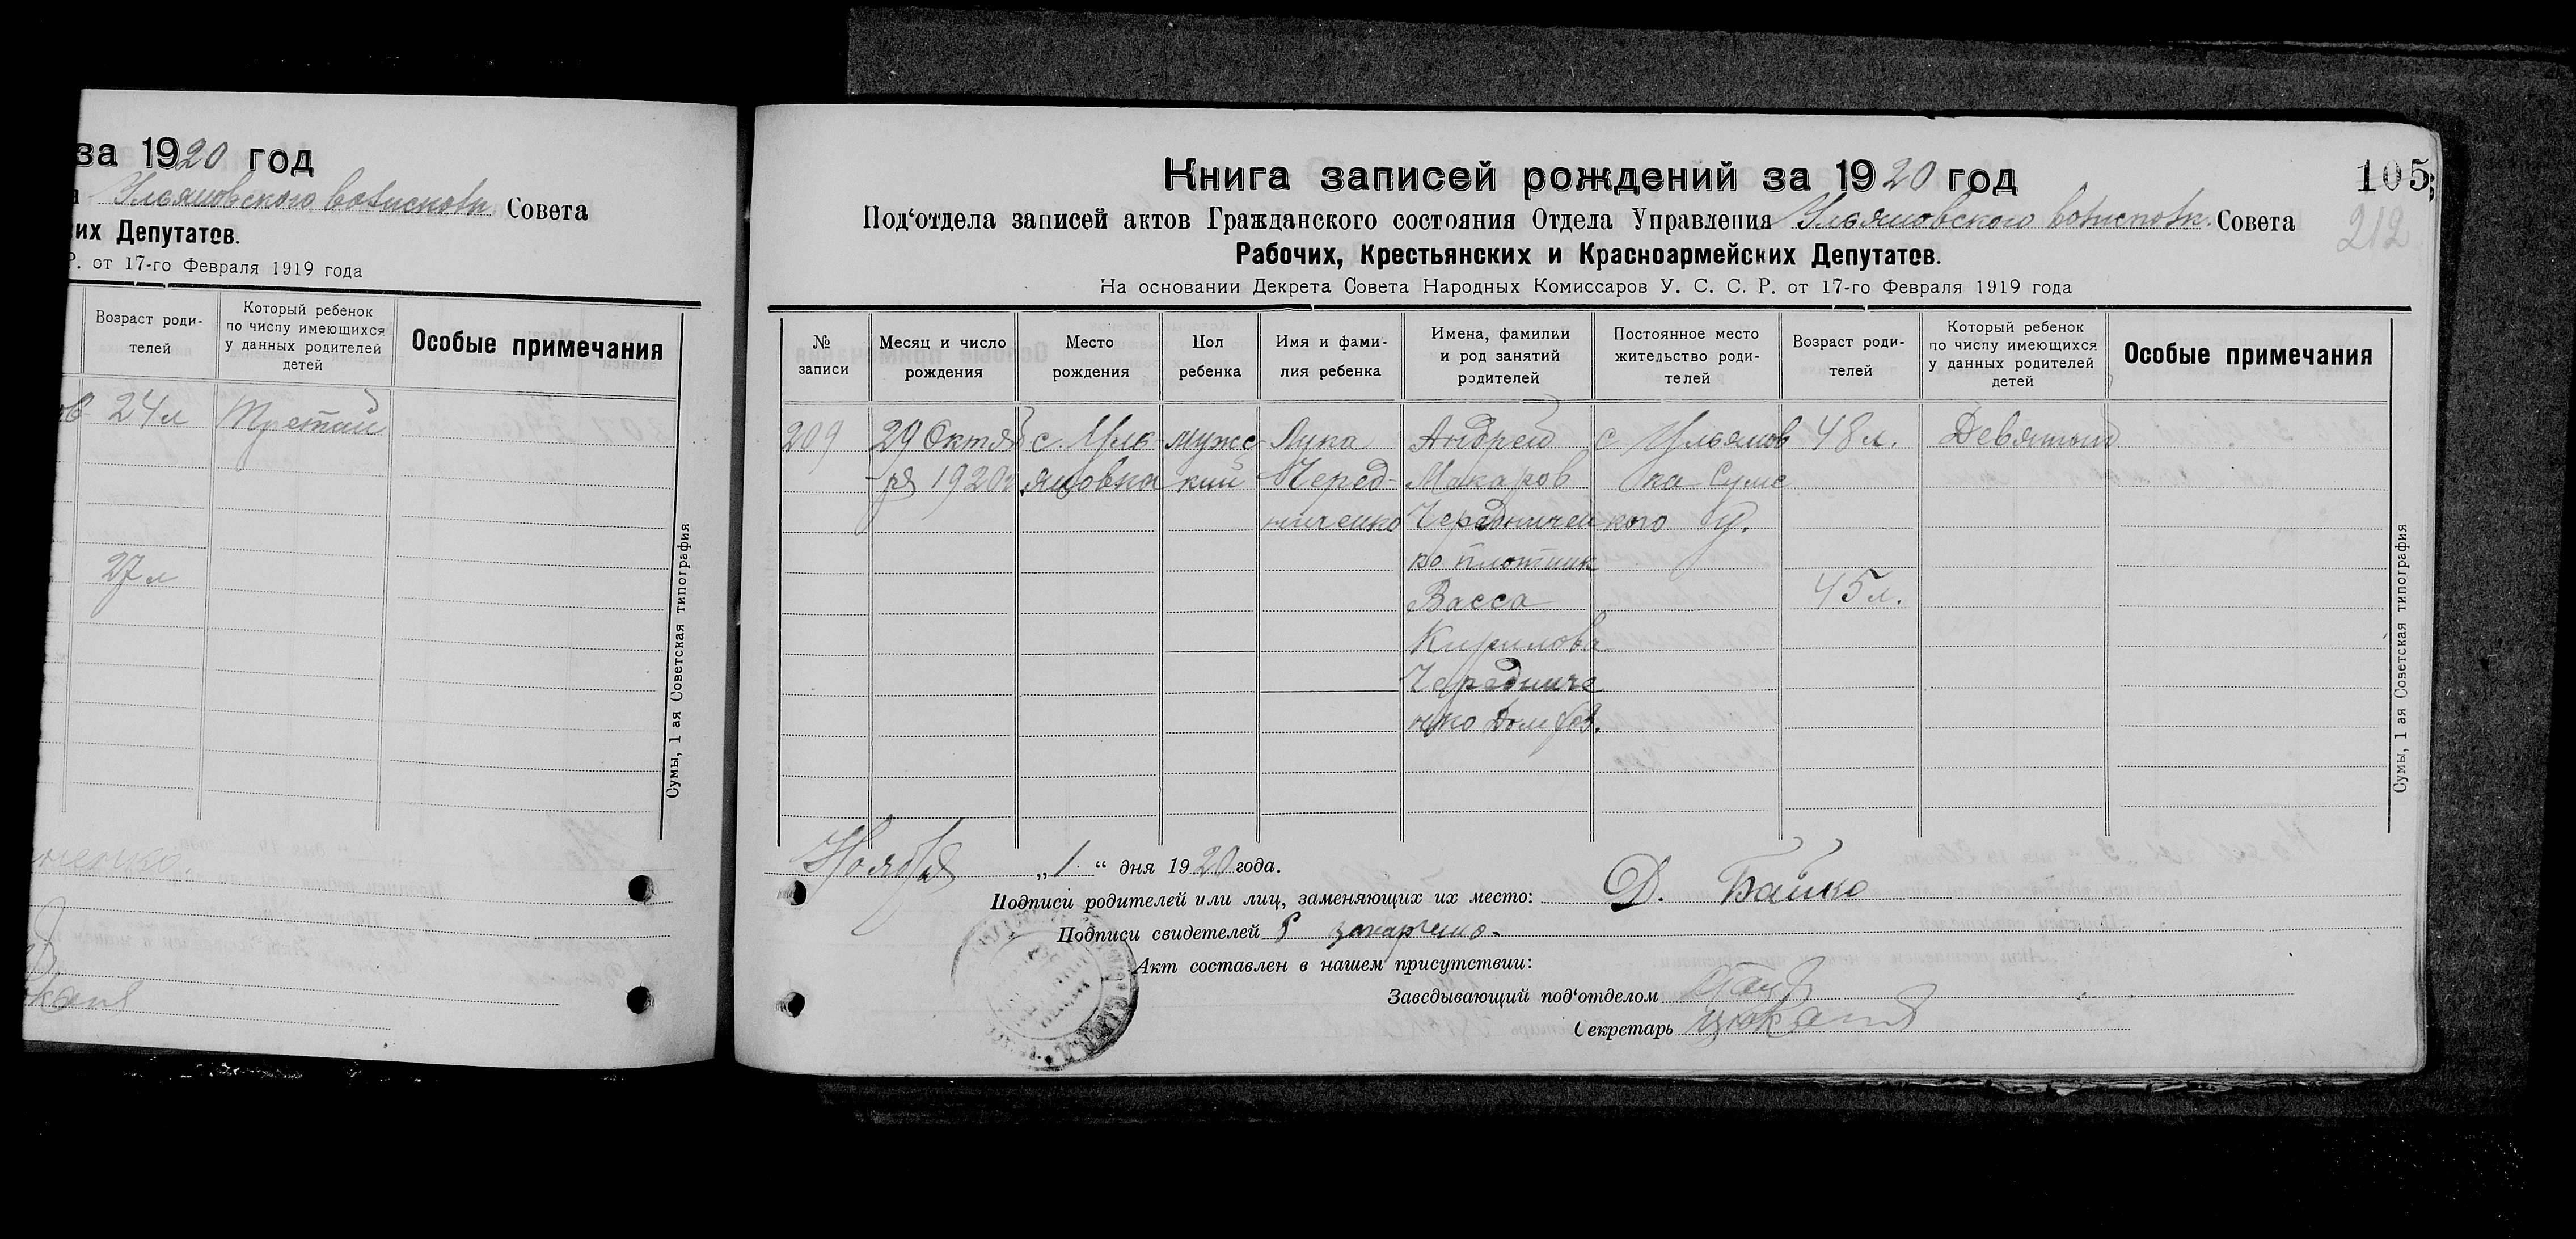 за 1920 год
Ульяновского Совета
их Депутатов.
Р. от 17-го Февраля 1919 года
Возраст роди-
телей
Который ребенок
по числу имеющихся
у данных родителей
детей
Особые примечания
24 л Третий
27 л
Сумы, 1 ая Советская типография
Книга записей рождений за 1920 год
105
Под‘отдела записей актов Гражданского состояния Отдела Управления Ульяновского Совета
212
Рабочих, Крестьянских и Красноармейских Депутатов.
На основании Декрета Совета Народных Комиссаров У. С. С. Р. от 17-го Февраля 1919 года
№
записи
Месяц и число
рождения
Место
рождения
Пол
ребенка
Имя и фами-
лия ребенка
Имена, фамилии
и род занятий
родителей
Постоянное место
жительство роди-
телей
Возраст роди-
телей
Который ребенок
по числу имеющихся
у данных родителей
детей
Особые примечания
209 29 Октяб с. Уль мужс Лука Андрей с Ульянов 48 л. Девятый
ря 1920 г яновка кий Черед- Макаров ка Сумс
ниченко Чередничен кого у.
ко плотник
Васса 45 л.
Кирилова
Чередниче
нко домхоз.
Сумы, 1 ая Советская типография
Ноября „1“ дня 1920 года.
Подписи родителей или лиц, заменяющих их место: Д. Бойко
Подписи свидетелей
Акт составлен в нашем присутствии:
Заведывающий под‘отделом
Секретарь